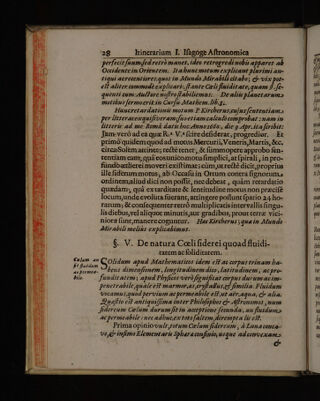 28 Itinerarium I. Isagoge Astronomica
perfecit suum, sed retrò manet, ideo retrogredi nobis apparet ab
Occidente in Orientem. Ita hunc motum explicant plurimi an-
tiqui ac recentiores, quos in Mundo Mirabili citabo; & vix pot-
est aliter commodè explicari, stante Cœli fluiditate, quam §. se-
quenti cum Auctore nostro stabilemus. De aliis planetarum
motibus sermo erit in Cursu Mathem. lib. 5.
Hunc retardationis motum P. Kircherus, cujus sententiam
per litteras exquisiveram, suo etiam calculo comprobat: nam in
litteris ad me Româ datis hoc Anno 1660. die 9. Apr. ita scribit:
Jam verò ad ea quæ R.ª V.ª scire desiderat, progredior. Et
primò quidem quod ad motus Mercurii, Veneris, Martis, &c.
circa Solem attinet, rectè tenet, & summopere approbo sen-
tentiam eam, quâ eos unico motu simplici, at spirali, in pro-
fundo ætheri moveri existimat: cùm, ut rectè dicit, proprius
ille siderum motus, ab Occasu in Ortum contra signorum
ordinem, aliud dici non possit, nec debeat, quàm retardatio
quædam, quâ ex tarditate & lentitudine motus non præcisè
locum, unde evoluta fuerant, attingere possunt spatio 24 ho-
rarum; & consequenter retrò multiplicatis intervallis singu-
lis diebus, vel aliquot minutis, aut gradibus, prout tertæ vici-
niora sunt, manere cogantur. Has Kircherus; quæ in Mundo
Mirabili meliùs explicabimus.
§. V. De natura Cœli siderei quoad fluidi-
tatem ac soliditatem.
Cœlum an
sit fluidum
ac permea-
bile.
Solidum apud Mathematicos idem est ac corpus trinam ha-
bens dimensionem, longitudinem dico, latitudinem, ac pro-
funditatem; apud Physicos verò significat corpus durum ac im-
penetrabile, quale est marmor, æs, crystallus, & similia. Fluidum
vocamus, quod pervium ac permeabile est, ut aër, aqua, & alia.
Quæstio est antiquissima inter Philosophos & Astronomos, num
sidereum Cœlum durum sit in acceptione secunda, an fluidum
ac permeabile: nec adhuc, ex toto saltem, dirempta lis est.
Prima opinio vult, totum Cœlum sidereum, à Luna conca-
vo, & infimo Elementaris Sphæra confinio, usque ad convexam
&